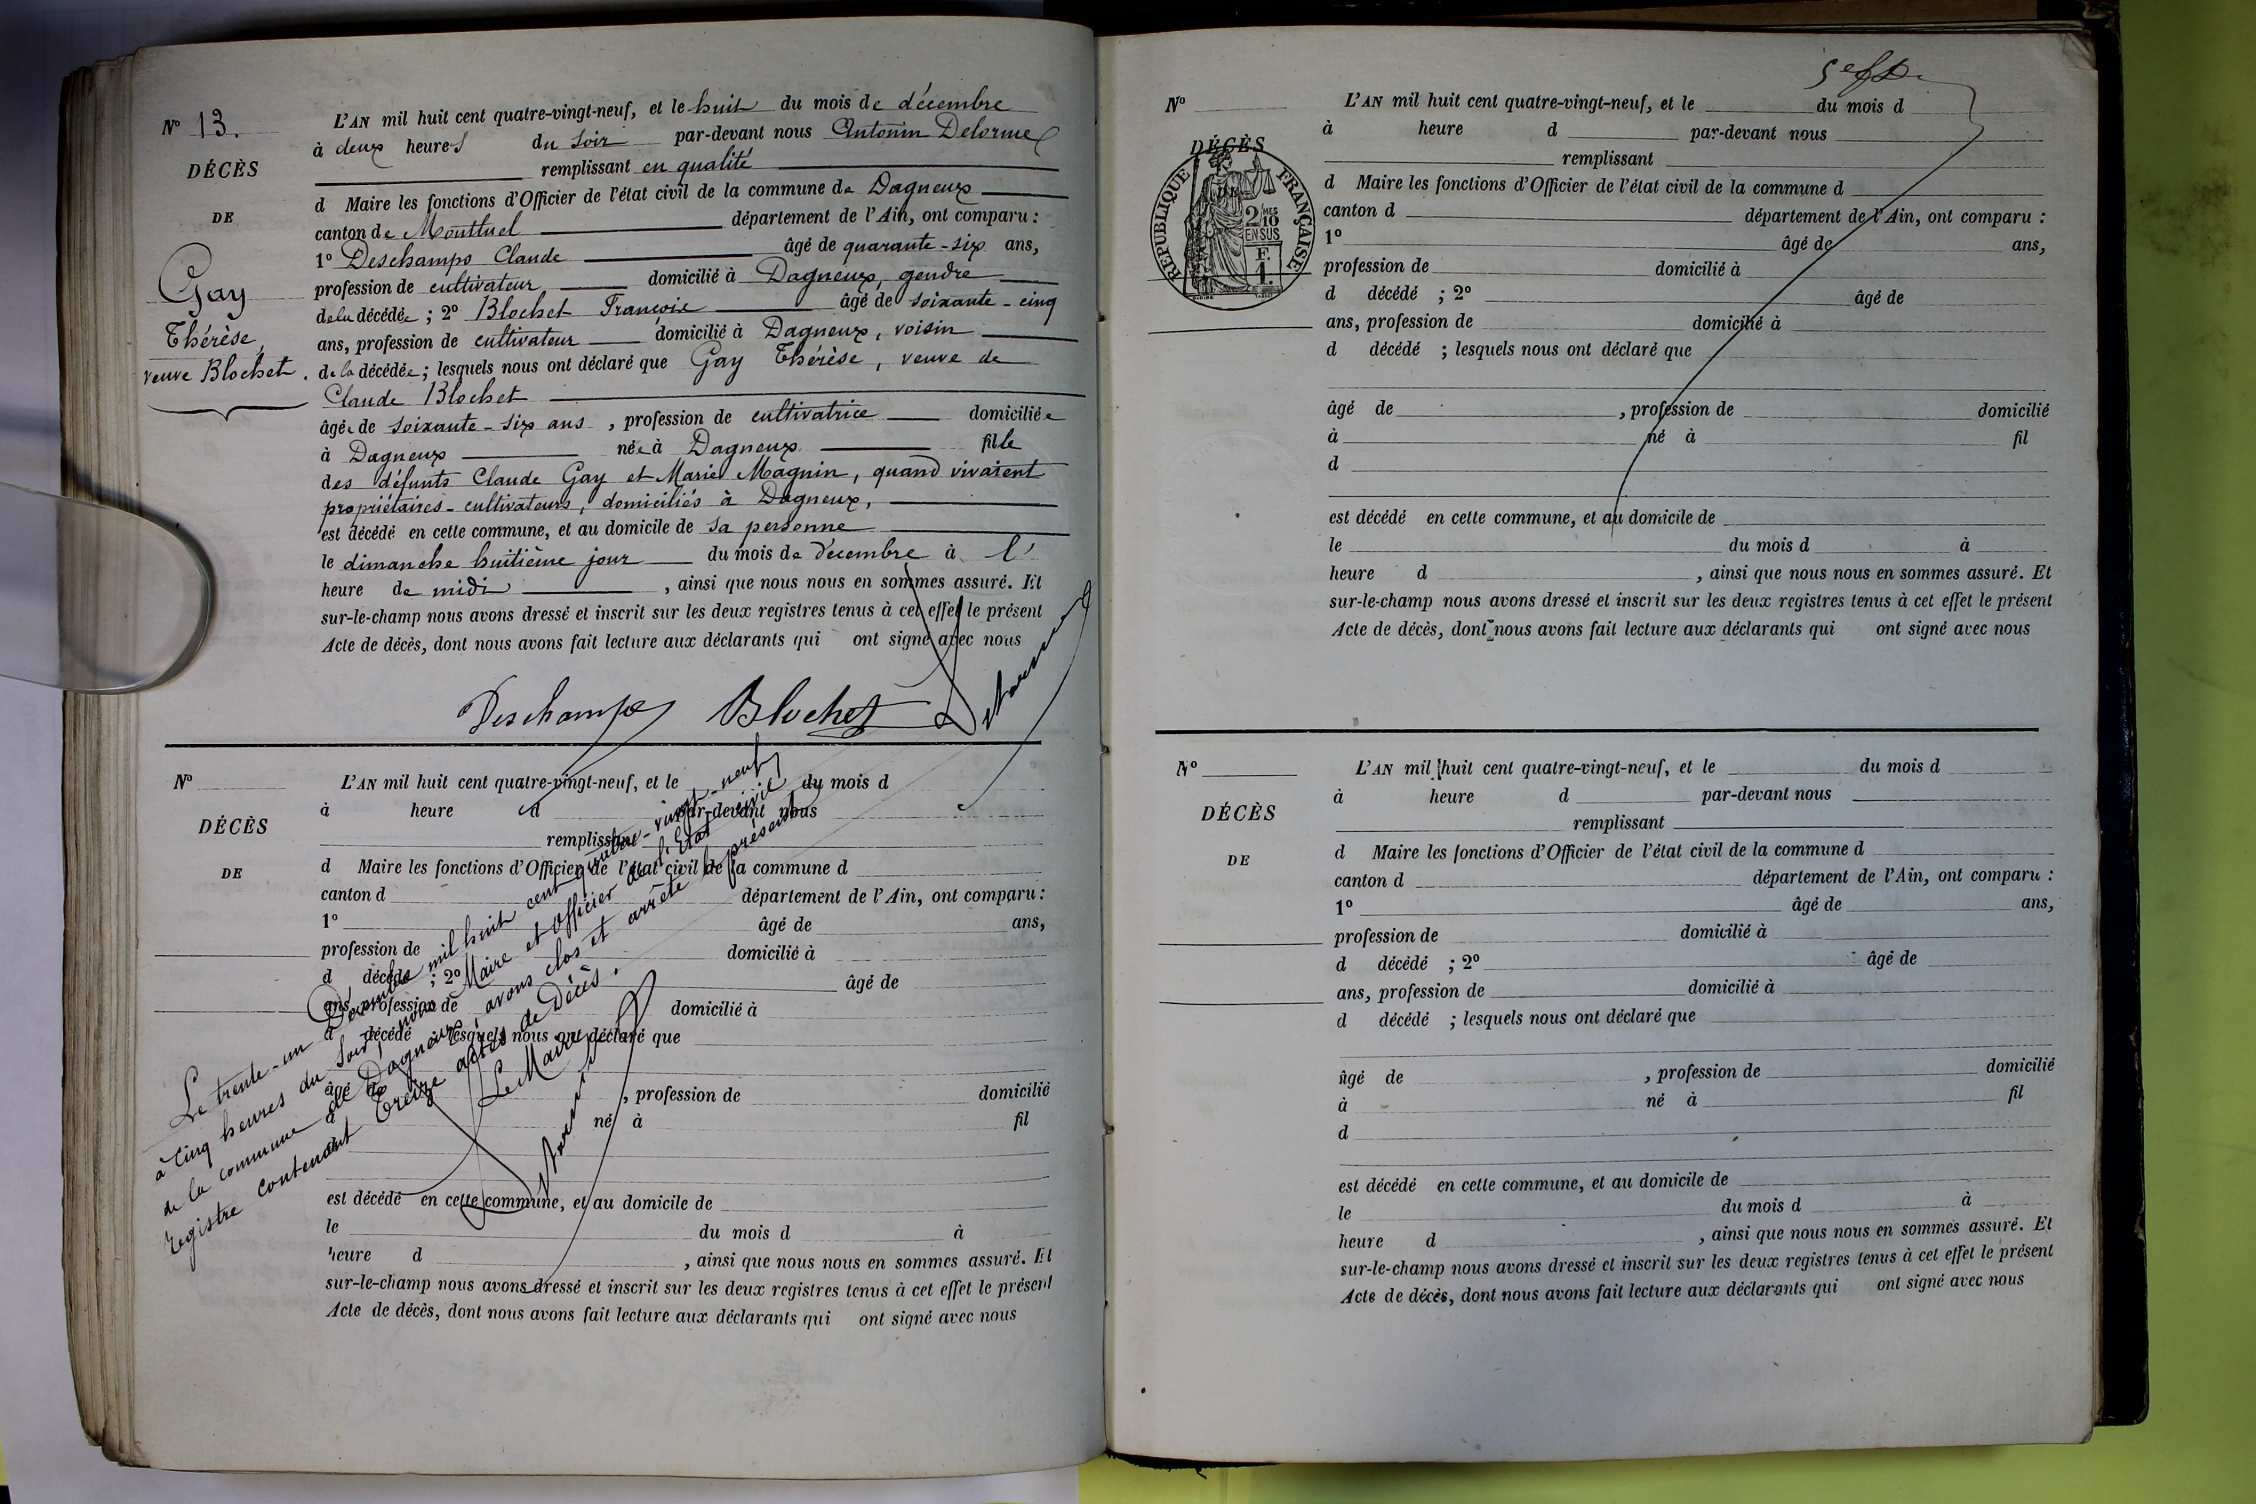 N° 13.
DÉCÈS
DE
Gay
Thérèse,
veuve Blochet.
L'AN mil huit cent quatre-vingt-neuf, et le huit du mois de décembre
à deux heures du soir par-devant nous Antonin Delorme
remplissant en qualité
d Maire les fonctions d'Officier de l'état civil de la commune de Dagneux
canton de Montluel département de l'Ain, ont comparu :
1° Deschamps Claude âgé de quarante-six ans,
profession de cultivateur, domicilié à Dagneux, gendre
de la décédée ; 2° Blochet François âgé de soixante-cinq
ans, profession de cultivateur domicilié à Dagneux, voisin
de la décédée ; lesquels nous ont déclaré que Gay Thérèse, veuve de
Claude Blochet
âgée de soixante-six ans, profession de cultivatrice domiciliée
à Dagneux née à Dagneux fille
des défunts Claude Gay et Marie Magnin, quand vivaient
propriétaires-cultivateurs, domiciliés à Dagneux,
est décédé en cette commune, et au domicile de sa personne
le dimanche huitième jour du mois de décembre à l'
heure de midi, ainsi que nous nous en sommes assuré. Et
sur-le-champ nous avons dressé et inscrit sur les deux registres tenus à cet effet le présent
Acte de décès, dont nous avons fait lecture aux déclarants qui ont signé avec nous
Deschamps Blochet Delorme
N°
DÉCÈS
DE
L'AN mil huit cent quatre-vingt-neuf, et le du mois d
à heure d par-devant nous
remplissant
d Maire les fonctions d'Officier de l'état civil de la commune d
canton d département de l'Ain, ont comparu :
1° âgé de ans,
profession de domicilié à
d décédé ; 2° âgé de
ans, profession de domicilié à
d décédé ; lesquels nous ont déclaré que
âgé de , profession de domicilié
à né à fil
d
est décédé en cette commune, et au domicile de
le du mois d à
heure d , ainsi que nous nous en sommes assuré. Et
sur-le-champ nous avons dressé et inscrit sur les deux registres tenus à cet effet le présent
Acte de décès, dont nous avons fait lecture aux déclarants qui ont signé avec nous
Le trente-un Décembre mil huit cent quatre-vingt-neuf
à cinq heures du soir, nous Maire et Officier de l'Etat civil
de la commune de Dagneux, avons clos et arrêté le présent
registre contenant Treize actes de Décès.
Le Maire,
Delorme
5e
N°
DÉCÈS
RÉPUBLIQUE FRANÇAISE
2/10 MES
EN SUS
F.
1.
L'AN mil huit cent quatre-vingt-neuf, et le du mois d
à heure d par-devant nous
remplissant
d Maire les fonctions d'Officier de l'état civil de la commune d
canton d département de l'Ain, ont comparu :
1° âgé de ans,
profession de domicilié à
d décédé ; 2° âgé de
ans, profession de domicilié à
d décédé ; lesquels nous ont déclaré que
âgé de , profession de domicilié
à né à fil
d
est décédé en cette commune, et au domicile de
le du mois d à
heure d , ainsi que nous nous en sommes assuré. Et
sur-le-champ nous avons dressé et inscrit sur les deux registres tenus à cet effet le présent
Acte de décès, dont nous avons fait lecture aux déclarants qui ont signé avec nous
N°
DÉCÈS
DE
L'AN mil huit cent quatre-vingt-neuf, et le du mois d
à heure d par-devant nous
remplissant
d Maire les fonctions d'Officier de l'état civil de la commune d
canton d département de l'Ain, ont comparu :
1° âgé de ans,
profession de domicilié à
d décédé ; 2° âgé de
ans, profession de domicilié à
d décédé ; lesquels nous ont déclaré que
âgé de , profession de domicilié
à né à fil
d
est décédé en cette commune, et au domicile de
le du mois d à
heure d , ainsi que nous nous en sommes assuré. Et
sur-le-champ nous avons dressé et inscrit sur les deux registres tenus à cet effet le présent
Acte de décès, dont nous avons fait lecture aux déclarants qui ont signé avec nous